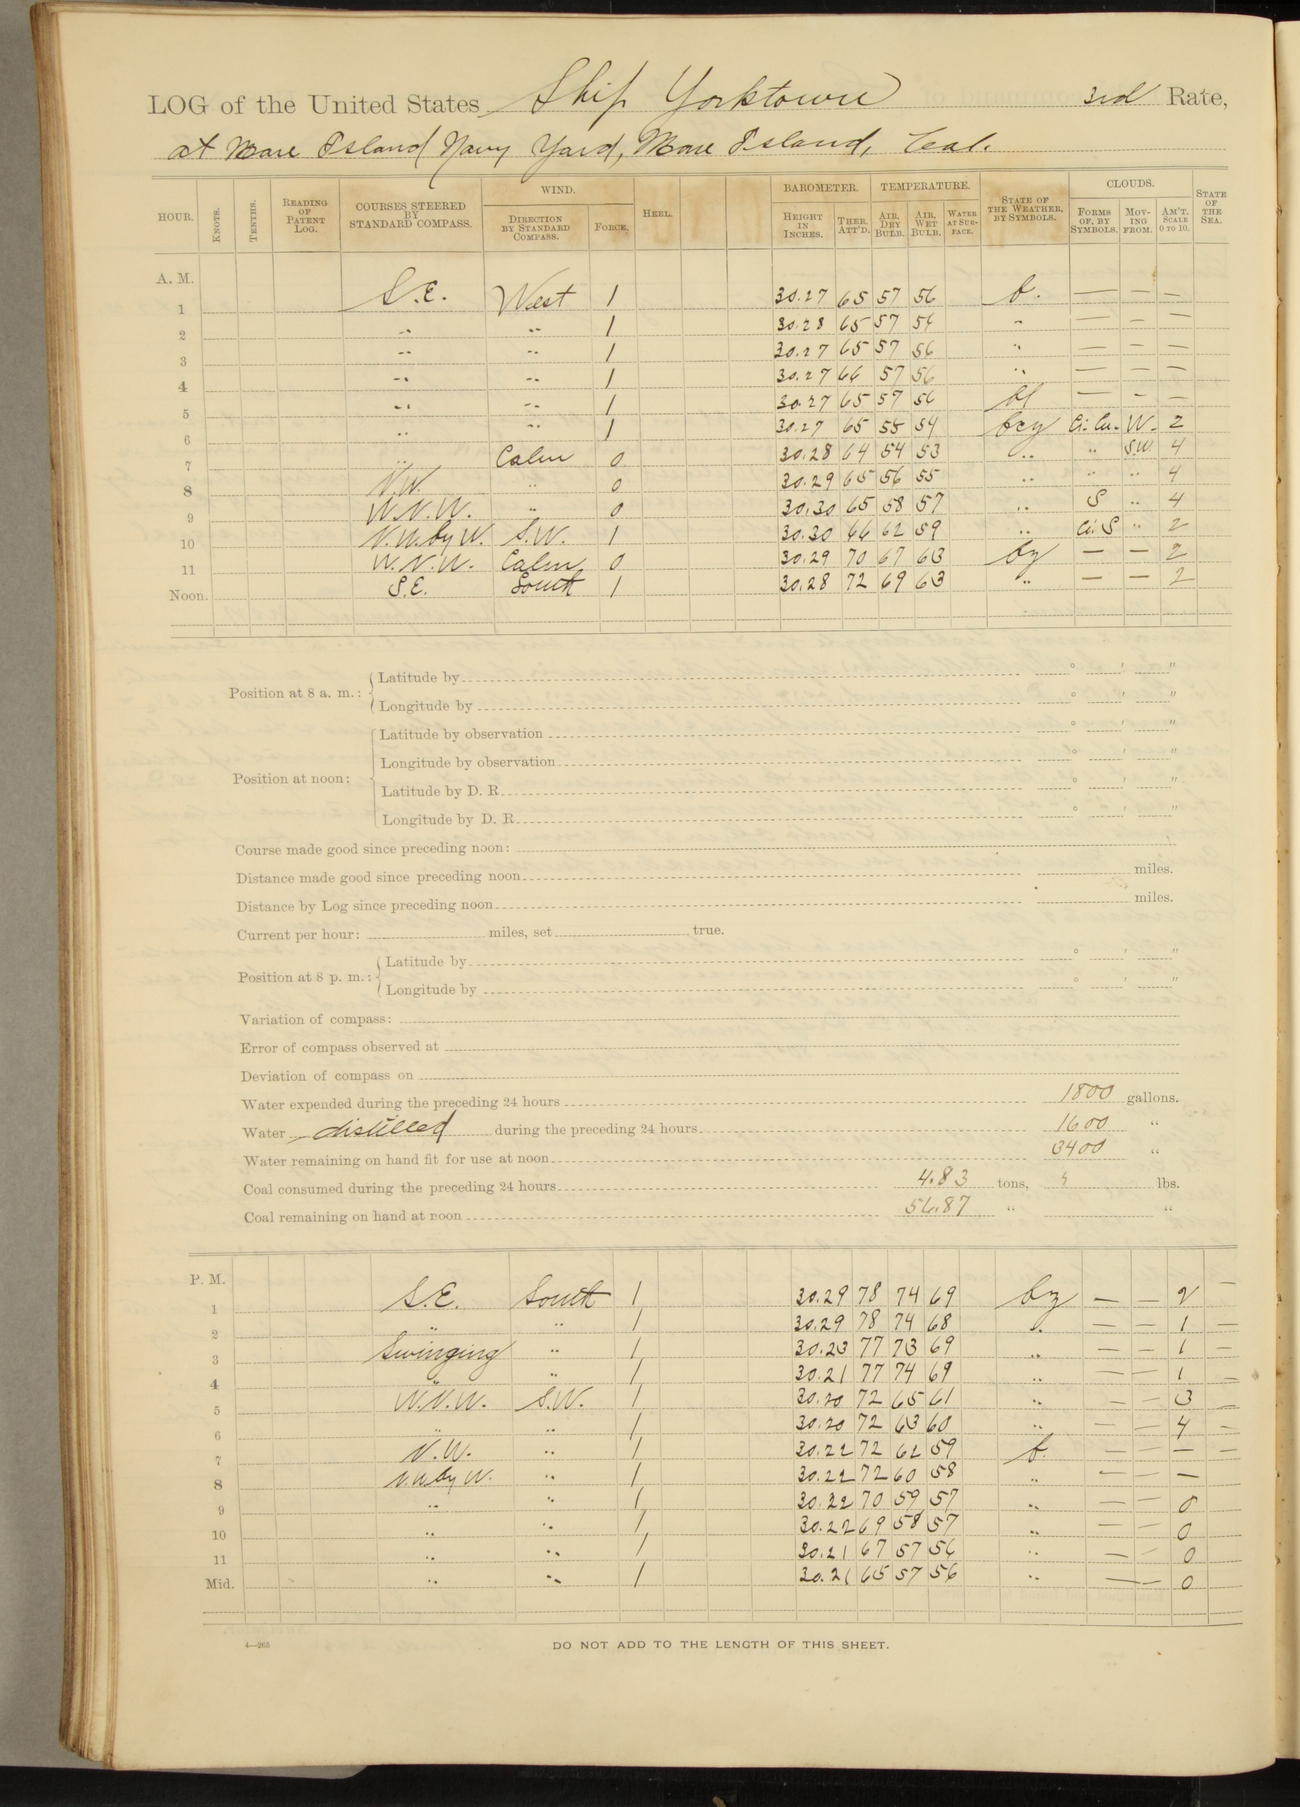 LOG of the United States Ship Yorktown 3rd Rate,
at Mare Island Navy Yard, Mare Island, Cal.
HOUR. KNOTS. TENTHS. READING OF PATENT LOG. COURSES STEERED BY STANDARD COMPASS. WIND. DIRECTION BY STANDARD COMPASS. FORCE. HEEL. BAROMETER. HEIGHT IN INCHES. THER. ATT'D. TEMPERATURE. AIR, DRY BULB. AIR, WET BULB. WATER AT SURFACE. STATE OF THE WEATHER, BY SYMBOLS. CLOUDS. FORMS OF, BY SYMBOLS. MOVING FROM. AM'T. SCALE 0 TO 10. STATE OF THE SEA.
A. M.
1 S.E. West 1 30.27 65 57 56 b. — — —
2 " " 1 30.28 65 57 56 " — — —
3 " " 1 30.27 65 57 56 " — — —
4 " " 1 30.27 66 57 56 " — — —
5 " " 1 30.27 65 57 56 — — —
6 " " 1 30.27 65 55 54 bcy Ci: Cu. W. 2
7 " Calm 0 30.28 64 54 53 " " S.W. 4
8 N.W. " 0 30.29 65 56 55 " " " 4
9 W.N.W. " 0 30.30 65 58 57 " S " 4
10 N.W. by W. S.W. 1 30.30 66 62 59 " Ci: S " 2
11 W.N.W. Calm 0 30.29 70 67 63 bz — — 2
Noon. S.E. South 1 30.28 72 69 63 " — — 2
Position at 8 a. m.: Latitude by ° ' "
Longitude by ° ' "
Position at noon: Latitude by observation ° ' "
Longitude by observation ° ' "
Latitude by D. R. ° ' "
Longitude by D. R. ° ' "
Course made good since preceding noon:
Distance made good since preceding noon miles.
Distance by Log since preceding noon miles.
Current per hour: miles, set true.
Position at 8 p. m.: Latitude by ° ' "
Longitude by ° ' "
Variation of compass:
Error of compass observed at
Deviation of compass on
Water expended during the preceding 24 hours 1800 gallons.
Water distilled during the preceding 24 hours 1600 "
Water remaining on hand fit for use at noon 3400 "
Coal consumed during the preceding 24 hours 4.83 tons, lbs.
Coal remaining on hand at noon 56.87 " "
P. M.
1 S.E. South 1 30.29 78 74 69 bz — — 2 —
2 " " 1 30.29 78 74 68 " — — 1 —
3 Swinging " 1 30.23 77 73 69 " — — 1 —
4 " " 1 30.21 77 74 69 " — — 1 —
5 W.N.W. S.W. 1 30.20 72 65 61 " — — 3 —
6 " " 1 30.20 72 63 60 " — — 4 —
7 N.W. " 1 30.22 72 62 59 b. — — — —
8 N.W. by W. " 1 30.22 72 60 58 " — — —
9 " " 1 30.22 70 59 57 " — — 0
10 " " 1 30.22 69 58 57 " — — 0
11 " " 1 30.21 67 57 56 " — — 0
Mid. " " 1 30.21 65 57 56 " — — 0
4—265 DO NOT ADD TO THE LENGTH OF THIS SHEET.